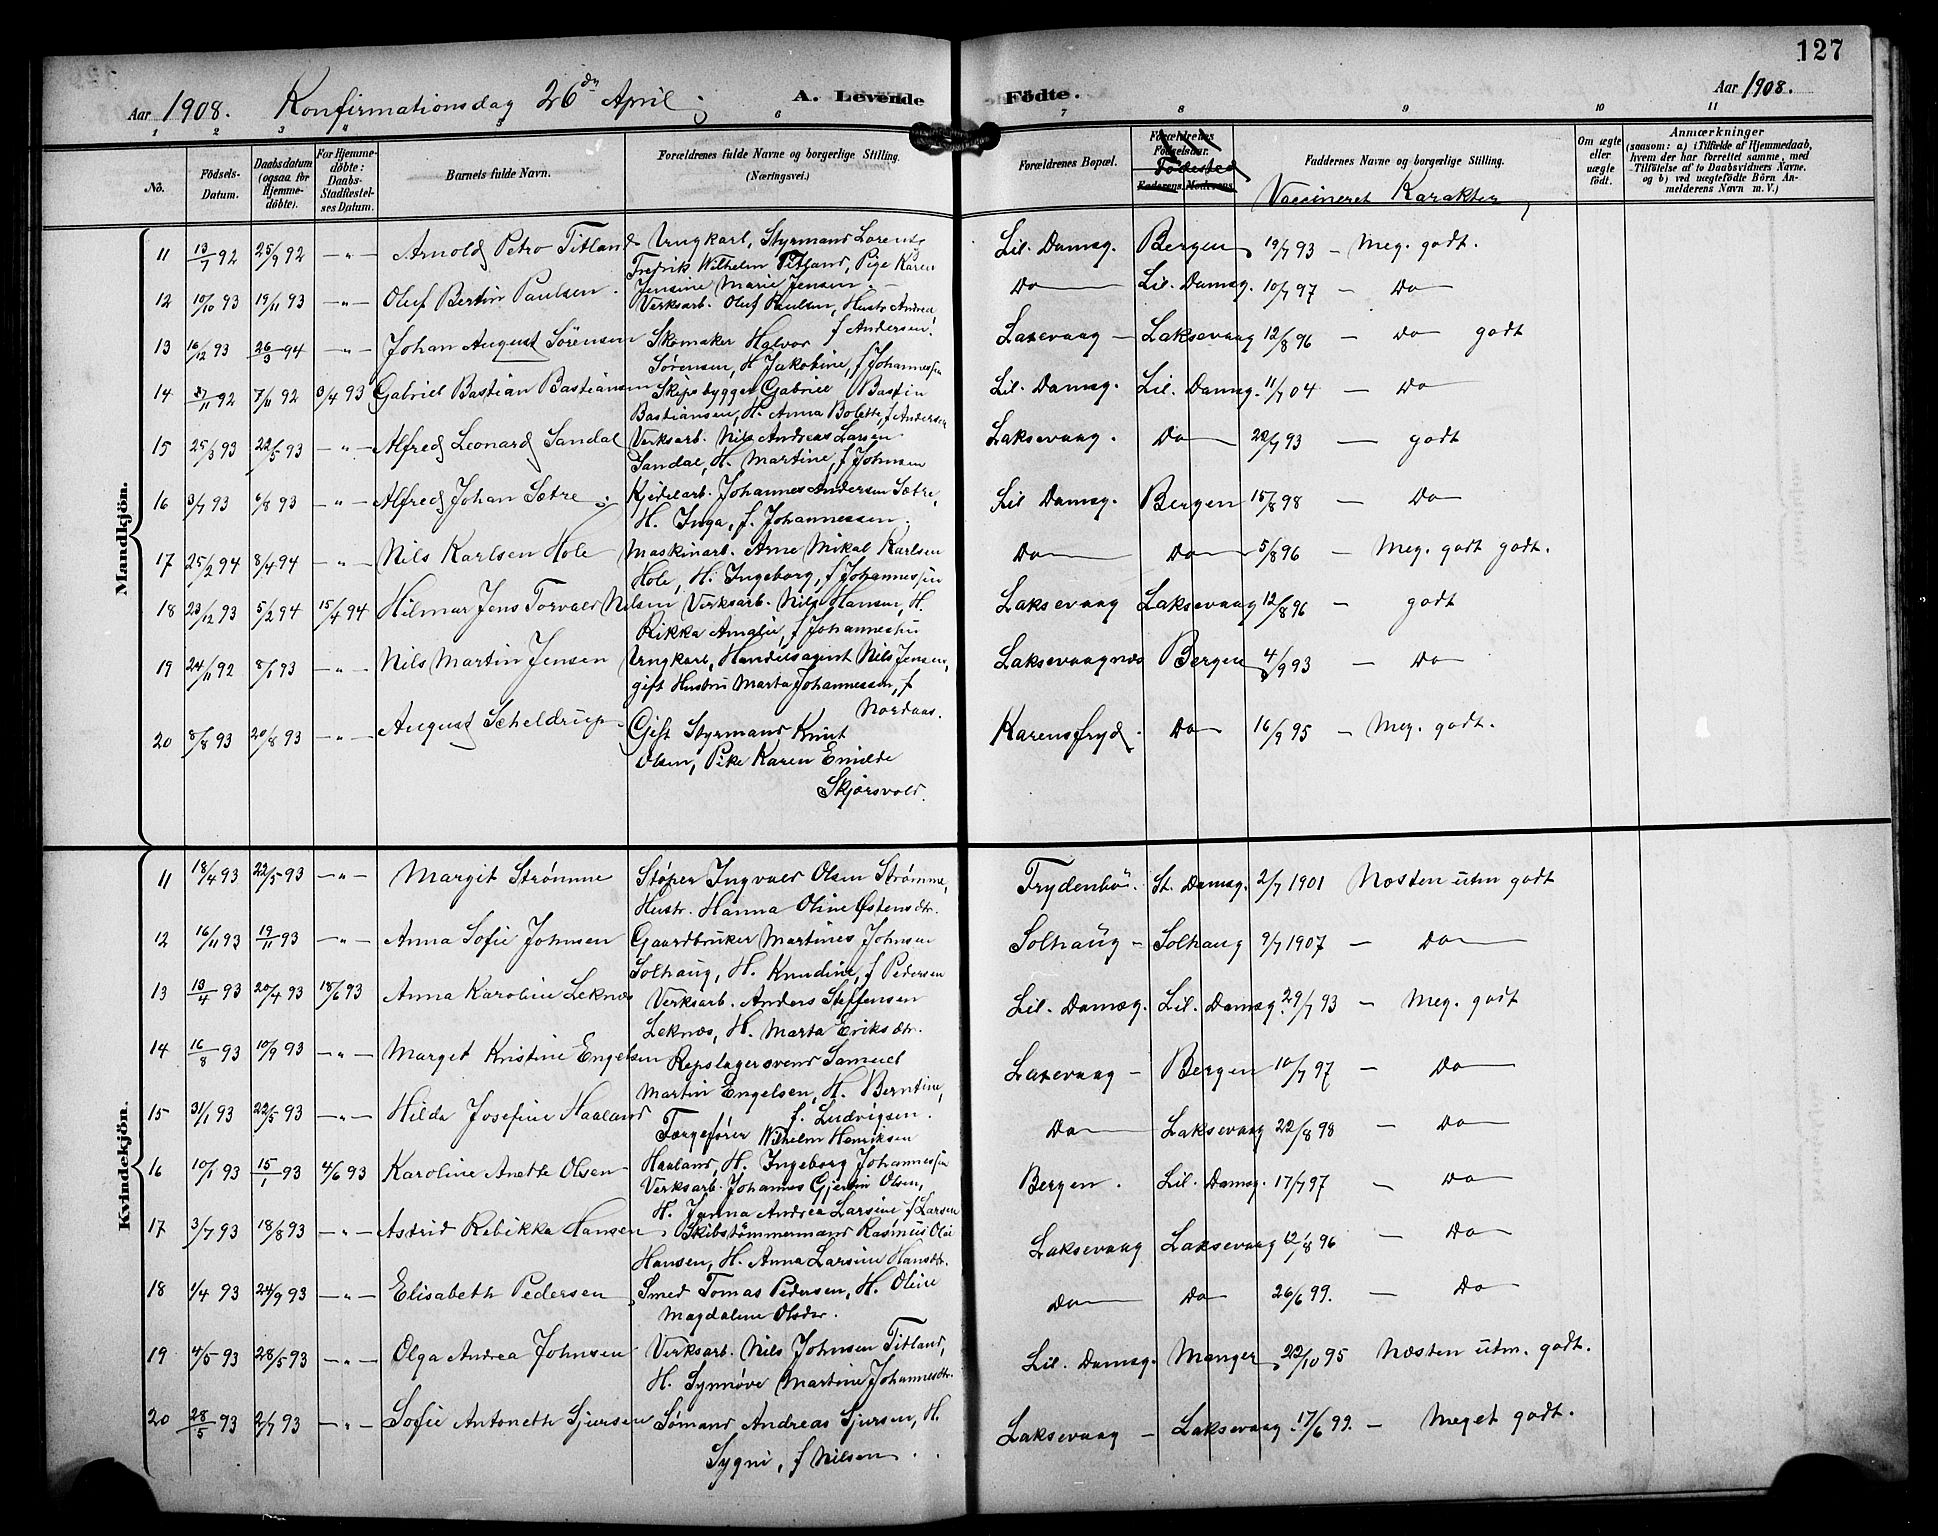 127
Aar 1908. Konfirmationsdag 26de April ; A. Levende Födte. Aar 1908.
1 2 3 " 5 6 7 8 9 10 11
No. Födsels-Datum. Daabsdatum (ogsaa for Hjemmedöbte). For Hjemmedöbte: Daabs-Stadfestelses Datum. Barnets fulde Navn. Forældrenes fulde Navne og borgerlige Stilling. (Næringsvei.) Forældrenes Bopæl. Forældrenes Födselsaar. Faderens. Moderens. Fødested Faddernes Navne og borgerlige Stilling. Vaccineret Karakter Om ægte eller uægte født. Anmærkninger (saasom: a) i Tilfælde af Hjemmedaab, hvem der har forrettet samme, med Tilföielse af to Daabsvidners Navne. og b) ved uægtefödte Börn Anmelderens Navn m. V.)
Mandkjön.
11 13/7 92 25/9 92 — " — Arnold Petro Titland Ungkarl, Styrmand Lorents Lil. Damsg. Bergen 19/7 93 — Meg. godt.
Fredrik Wilhelm Titland, Pige Karen
Jensine Marie Jensen.
12 10/10 93 19/11 93 — " — Oluf Bertin Paulsen. Verksarb. Oluf Paulsen, Hustr. Andrea, Do Lil. Damsg. 10/7 97 — Do
f Andersen.
13 16/12 93 26/3 94 — " — Johan August Sörensen Skomaker Halvor Laxevaag — Laksevaag 12/8 96 — Do godt
Sørensen, H Jakobine, f Johannessen
14 27/11 92 7/11 92 3/4 93 Gabriel Bastian Bastiansen Skipsbygger Gabriel Bastin Lil. Damsg. Lil. Damsg. 11/7 04 — Do
Bastiansen, H. Anna Bolette, f Andersen
15 25/3 93 22/5 93 — " — Alfred Leonard Sandal Verksarb. Nils Andreas Larsen Laksevaag. Do 22/7 93 — godt
Sandal, H. Martine, f Johnsen
16 3/7 93 6/8 93 — " — Alfred Johan Sætre. Kjedelarb. Johannes Andersen Sætre, Lil Damsg. Bergen 15/8 98 — Do
H. Inga, f. Johannessen.
17 25/2 94 8/4 94 — " — Nils Karlsen Hole Maskinarb. Arne Mikal Karlsen Do Do 5/8 96 — Meg. godt godt.
Hole, H. Ingeborg, f Johannessen
18 23/12 93 5/2 94 15/4 94 Hilmar Jens Torvald Nilsen Verksarb. Nils Hansen, H. Laksevaag Laksevaag 12/8 96 — godt
Rikka Amalie, f Johannessen
19 24/11 92 8/1 93 — " — Nils Martin Jensen Ungkarl, Handelsagent Nils Jensen, Laksevaagnæs Bergen 4/9 93 — Do
gift Hustru Marta Johannessen, f
Nordaas.
20 8/8 93 20/8 93 — " — August Scheldrup Gift Styrmand Knut Karensfryd. Do 16/9 95 — Meg. godt.
Olsen, Pike Karen Emilde
Skjørsvold.
Kvindekjön.
11 18/4 93 22/5 93 — " — Margit Strömme Støper Ingvald Olsen Strømme, Frydenbö. St. Damsg. 2/7 1901 Næsten utm godt
Hustr. Hanna Oline Østensdtr.
12 16/11 93 19/11 93 — " — Anna Sofie Johnsen Gaardbruker Martines Johnsen Solhaug — Solhaug 9/7 1907 — Do
Solhaug, H. Knudine, f Pedersen
13 13/4 93 20/4 93 18/6 93 Anna Karoline Leknæs Verksarb. Anders Steffensen Lil. Damsg. Lil. Damsg. 29/7 93 — Meg. godt
Leknæs, H. Marta Eriksdtr.
14 16/8 93 10/9 93 — " — Marget Kristine Engelsen Repslagersvend Samuel Laxevaag — Bergen 10/7 97 — Do
Martin Engelsen, H. Berntine,
f. Ludvigsen.
15 31/1 93 22/5 93 — " — Hilda Josefine Haaland Færgefører Wilhelm Henriksen Do Laksevaag 22/8 98 — Do
Haaland, H. Ingeborg Johannessen
16 10/1 93 15/1 93 4/6 93 Karoline Anette Olsen Verksarb. Johannes Gjertin Olsen, Bergen. Lil. Damsg. 17/7 97 — Do
H. Janna Andrea Larsine f Larsen
17 3/7 93 18/8 93 — " — Astrid Rebikka Hansen Skibstömmermand Rasmus Olai Laksevaag Laksevaag 12/8 96 — Do
Hansen, H. Anna Larsine Hansdtr.
18 1/4 93 24/9 93 — " — Elisabeth Pedersen Smed Tomas Pedersen, H. Oline Do Do 26/6 99. — Do
Magdalene Olsdtr.
19 4/5 93 28/5 93 — " — Olga Andrea Johnsen Verksarb. Nils Johnsen Titland, Lil. Damsg. Manger 22/10 95 Næsten utm. godt.
H. Synnöve Martine Johannesdtr.
20 28/5 93 2/7 93 — " — Sofie Antoneth Sjursen Sømand Andreas Sjursen, H. Laksevaag — Laksevaag. 17/6 99. — Meget godt.
Sygni, f Nilsen.